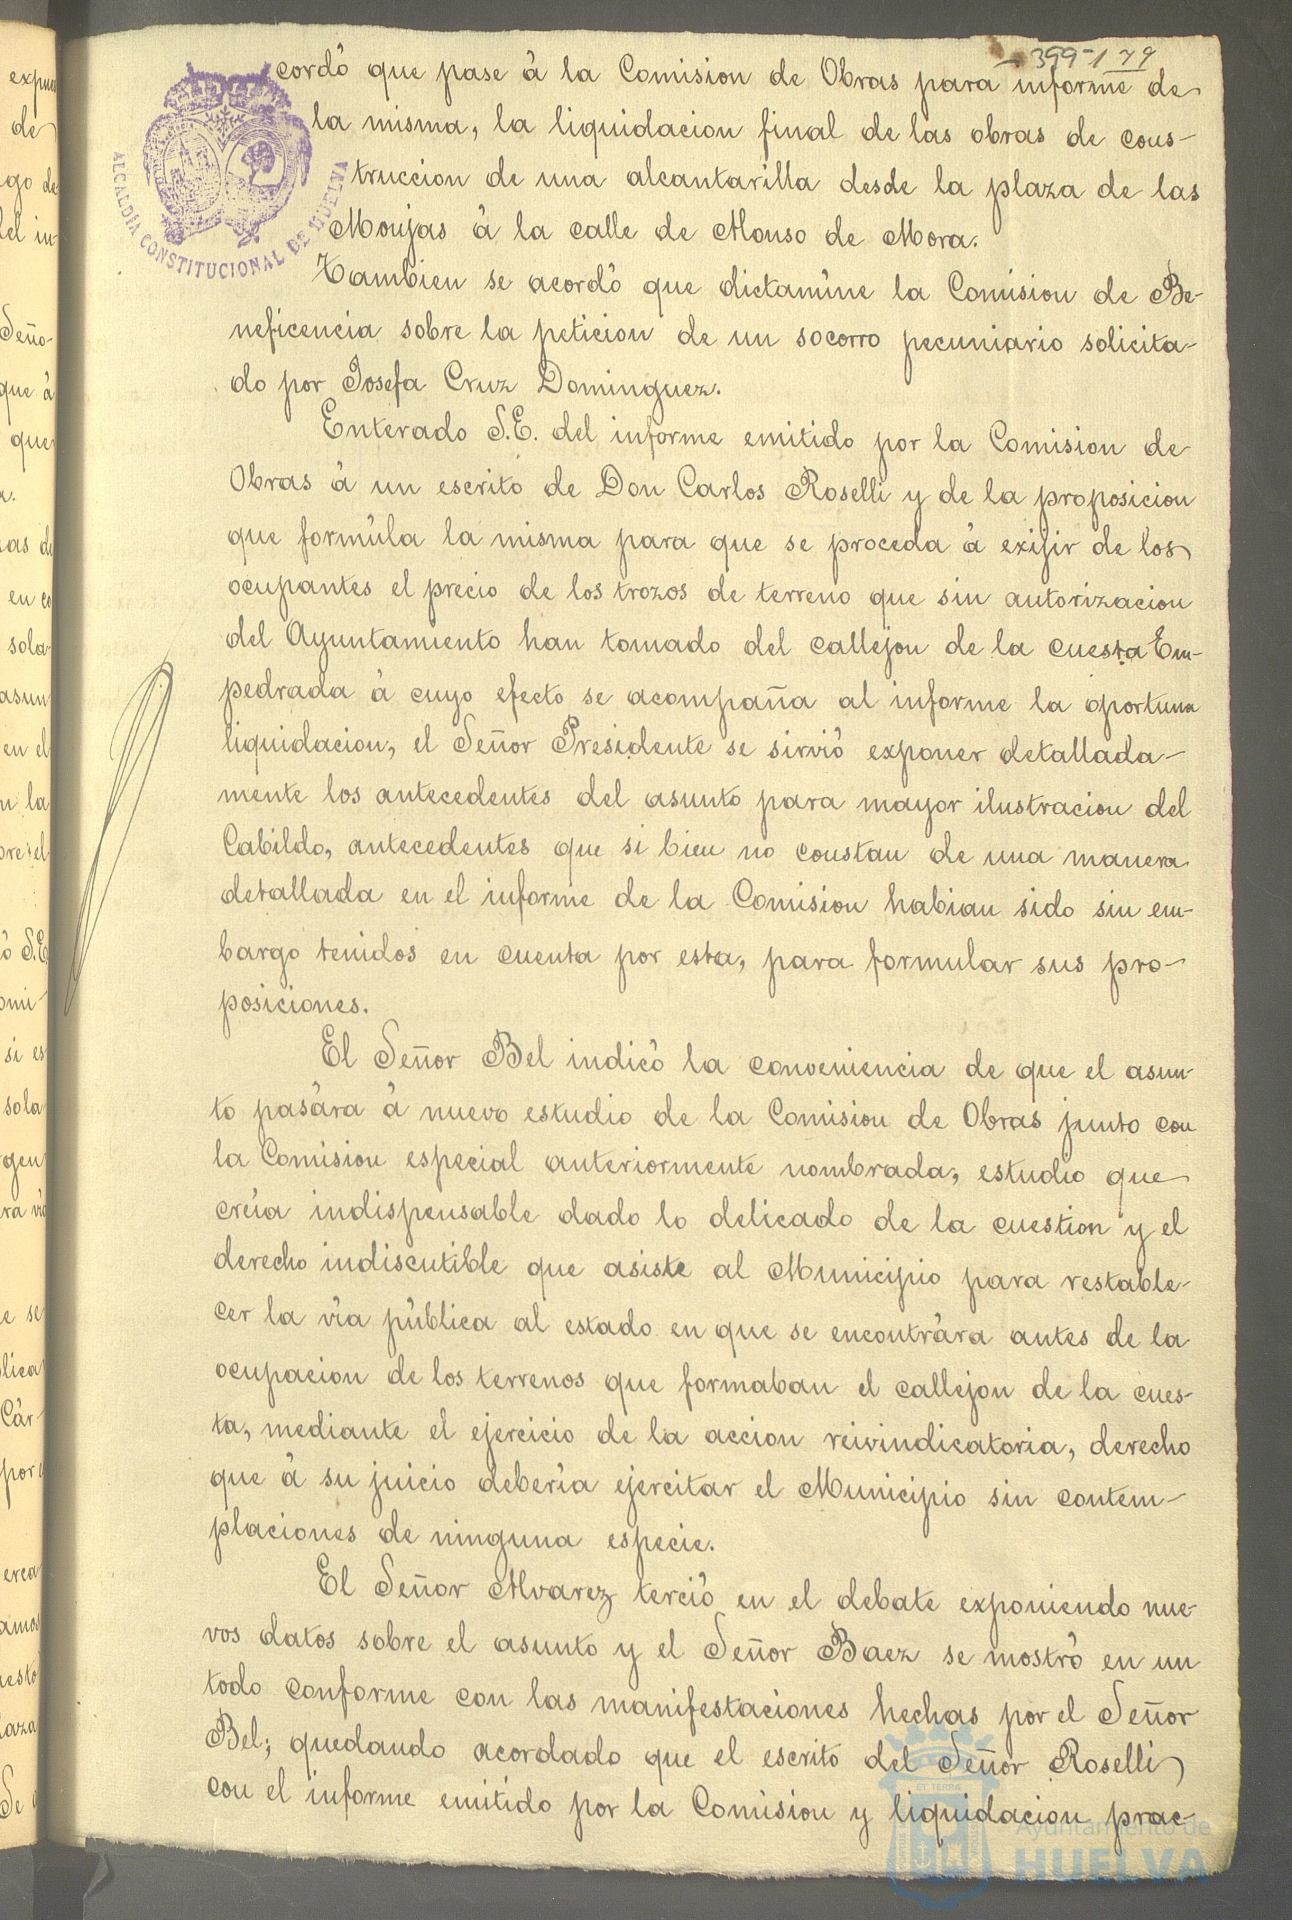 399-179
cordó que pase á la Comision de Obras para informe de
la misma, la liquidacion final de las obras de cons-
truccion de una alcantarilla desde la plaza de las
Monjas á la calle de Alonso de Mora.
Tambien se acordó que dictamíne la Comision de Be-
neficencia sobre la peticion de un socorro pecuniario solicita-
do por Josefa Cruz Dominguez.
Enterado S.E. del informe emitido por la Comision de
Obras á un escrito de Don Carlos Roselli y de la proposicion
que formúla la misma para que se proceda á exijir de los
ocupantes el precio de los trozos de terreno que sin autorizacion
del Ayuntamiento han tomado del callejon de la cuesta Em-
pedrada á cuyo efecto se acompaña al informe la oportuna
liquidacion, el Señor Presidente se sirvió exponer detallada-
mente los antecedentes del asunto para mayor ilustracion del
Cabildo, antecedentes que si bien no constan de una manera
detallada en el informe de la Comision habian sido sin em-
bargo tenidos en cuenta por esta, para formular sus pro-
posiciones.
El Señor Bel indicó la conveniencia de que el asun-
to pasára á nuevo estudio de la Comision de Obras junto con
la Comision especial anteriormente nombrada, estudio que
creía indispensable dado lo delicado de la cuestion y el
derecho indiscutible que asiste al Municipio para restable-
cer la vía pública al estado en que se encontrára antes de la
ocupacion de los terrenos que formaban el callejon de la cues-
ta, mediante el ejercicio de la accion reivindicatoria, derecho
que á su juicio debería ejercitar el Municipio sin contem-
placiones de ninguna especie.
El Señor Alvarez terció en el debate exponiendo nue-
vos datos sobre el asunto y el Señor Baez se mostró en un
todo conforme con las manifestaciones hechas por el Señor
Bel; quedando acordado que el escrito del Señor Roselli
con el informe emitido por la Comision y liquidacion prac-
ALCALDÍA CONSTITUCIONAL DE HUELVA
Ayuntamiento de
HUELVA